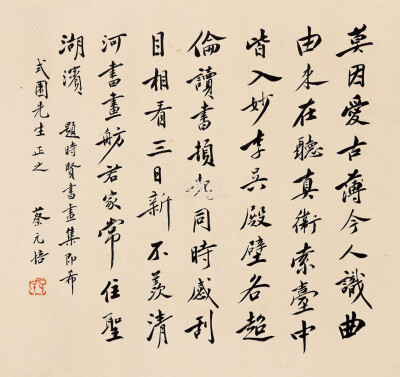 莫因愛古薄今人識曲
由来在聽真衛索臺中
皆入妙李吳殿壁各超
倫讀書同時感刮
目相看三日新不羨清
河書畫舫君家常住聖
湖濱
題時賢書畫集即希
式園先生正之 蔡元培